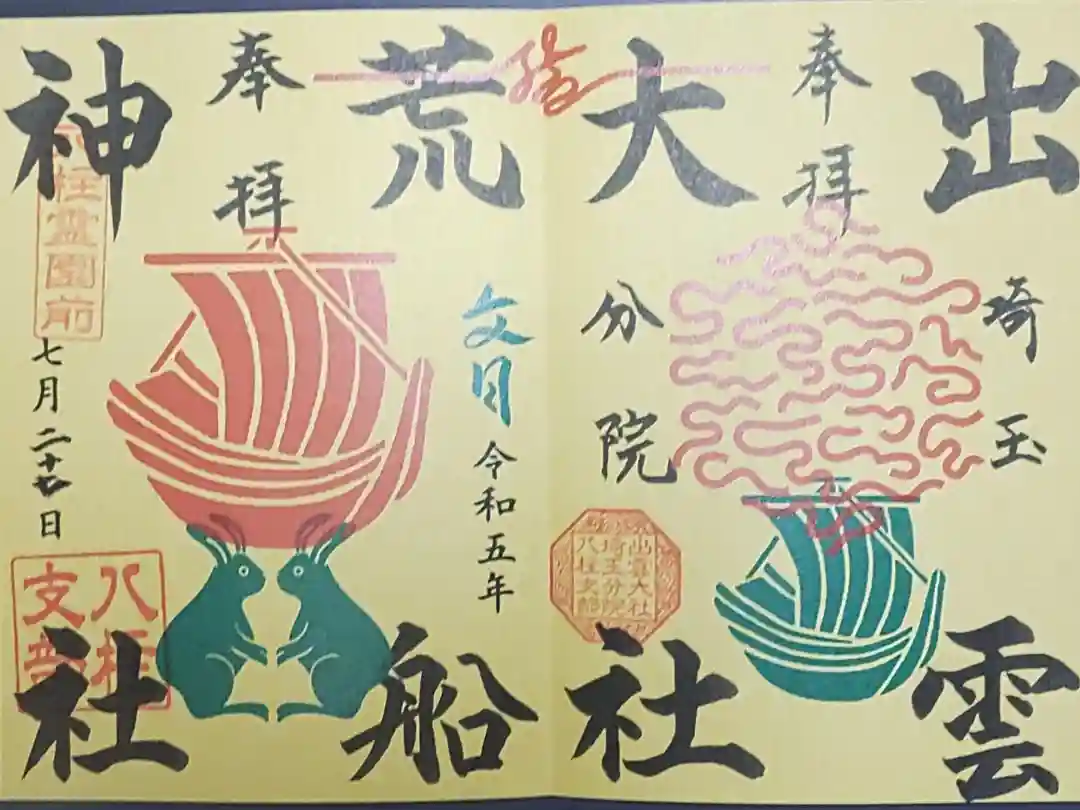 出雲
埼玉
奉拝
大社
分院
出雲大社
埼玉分院
八柱支部
縁
荒船
文月
令和五年
奉拝
神社
八柱霊園前
七月二十七日
八柱
支部